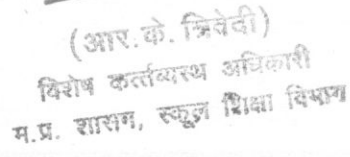 (आर. के. त्रिवेदी)
विशेष कर्त्तव्यस्थ अधिकारी
म.प्र. शासन, स्कूल शिक्षा विभाग